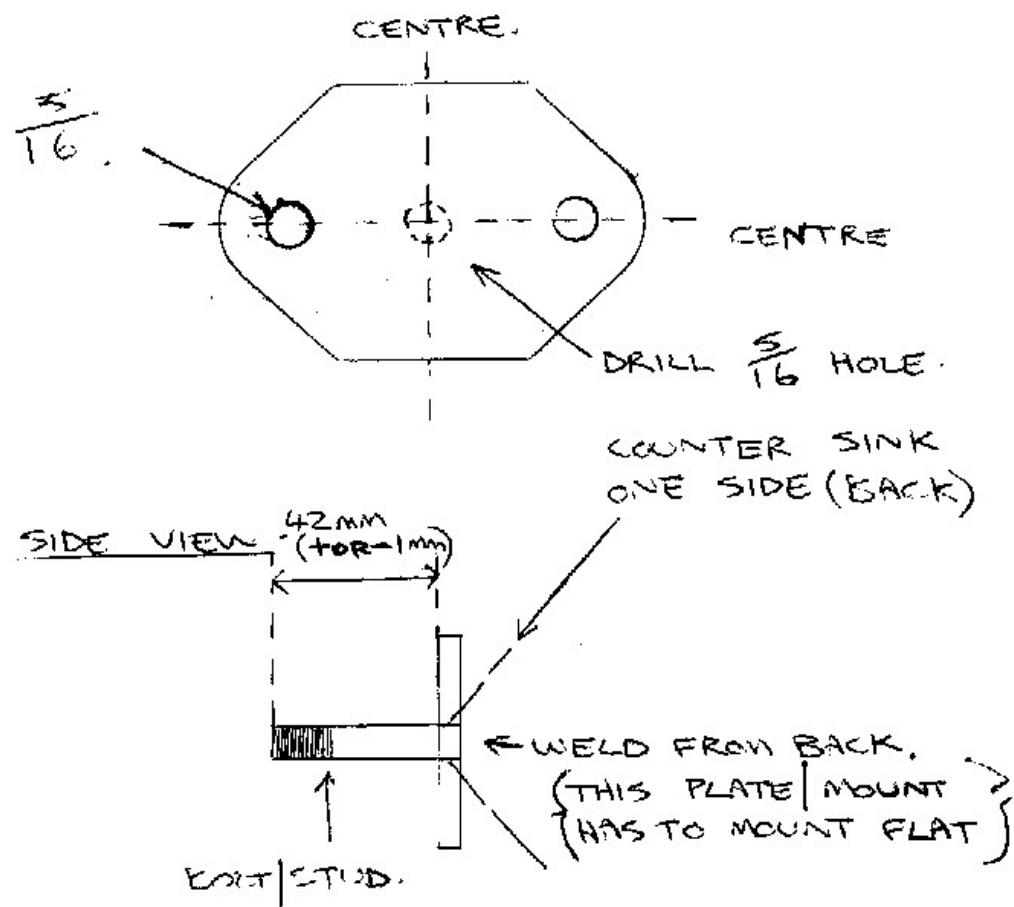 CENTRE.
5/16.
CENTRE
DRILL 5/16 HOLE.
COUNTER SINK
ONE SIDE (BACK)
SIDE VIEW
42mm
(+OR-1mm)
←WELD FROM BACK.
{THIS PLATE/MOUNT
{HAS TO MOUNT FLAT}
BOLT/STUD.